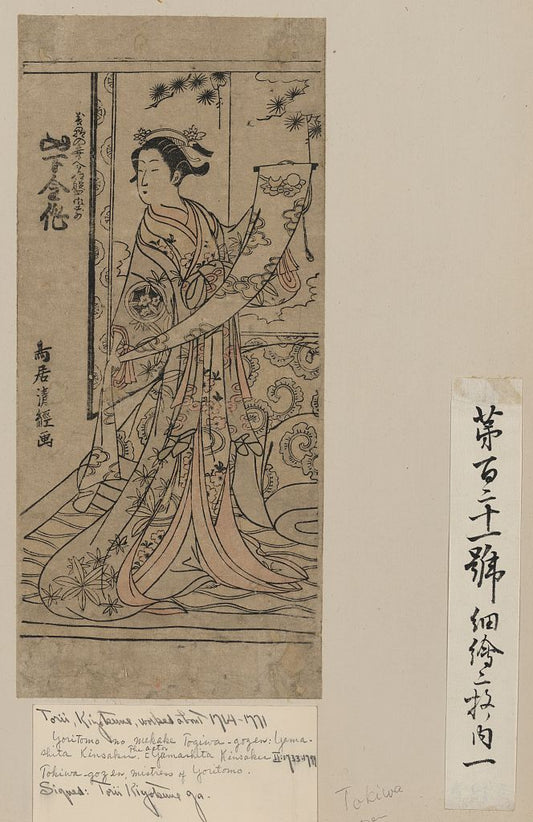 山下金作
鳥居清經画
第百二十一號 細繪二枚ノ内一
Torii, Kiyotsune, worked about 1764-1771
Yoritomo no mekake Togiwa-gozen: Yama-
shita Kinsaku. The actor Yamashita Kinsaku II
Tokiwa-gozen, mistress of Yoritomo.
Signed: Torii Kiyotsune ga.
Tokiwa